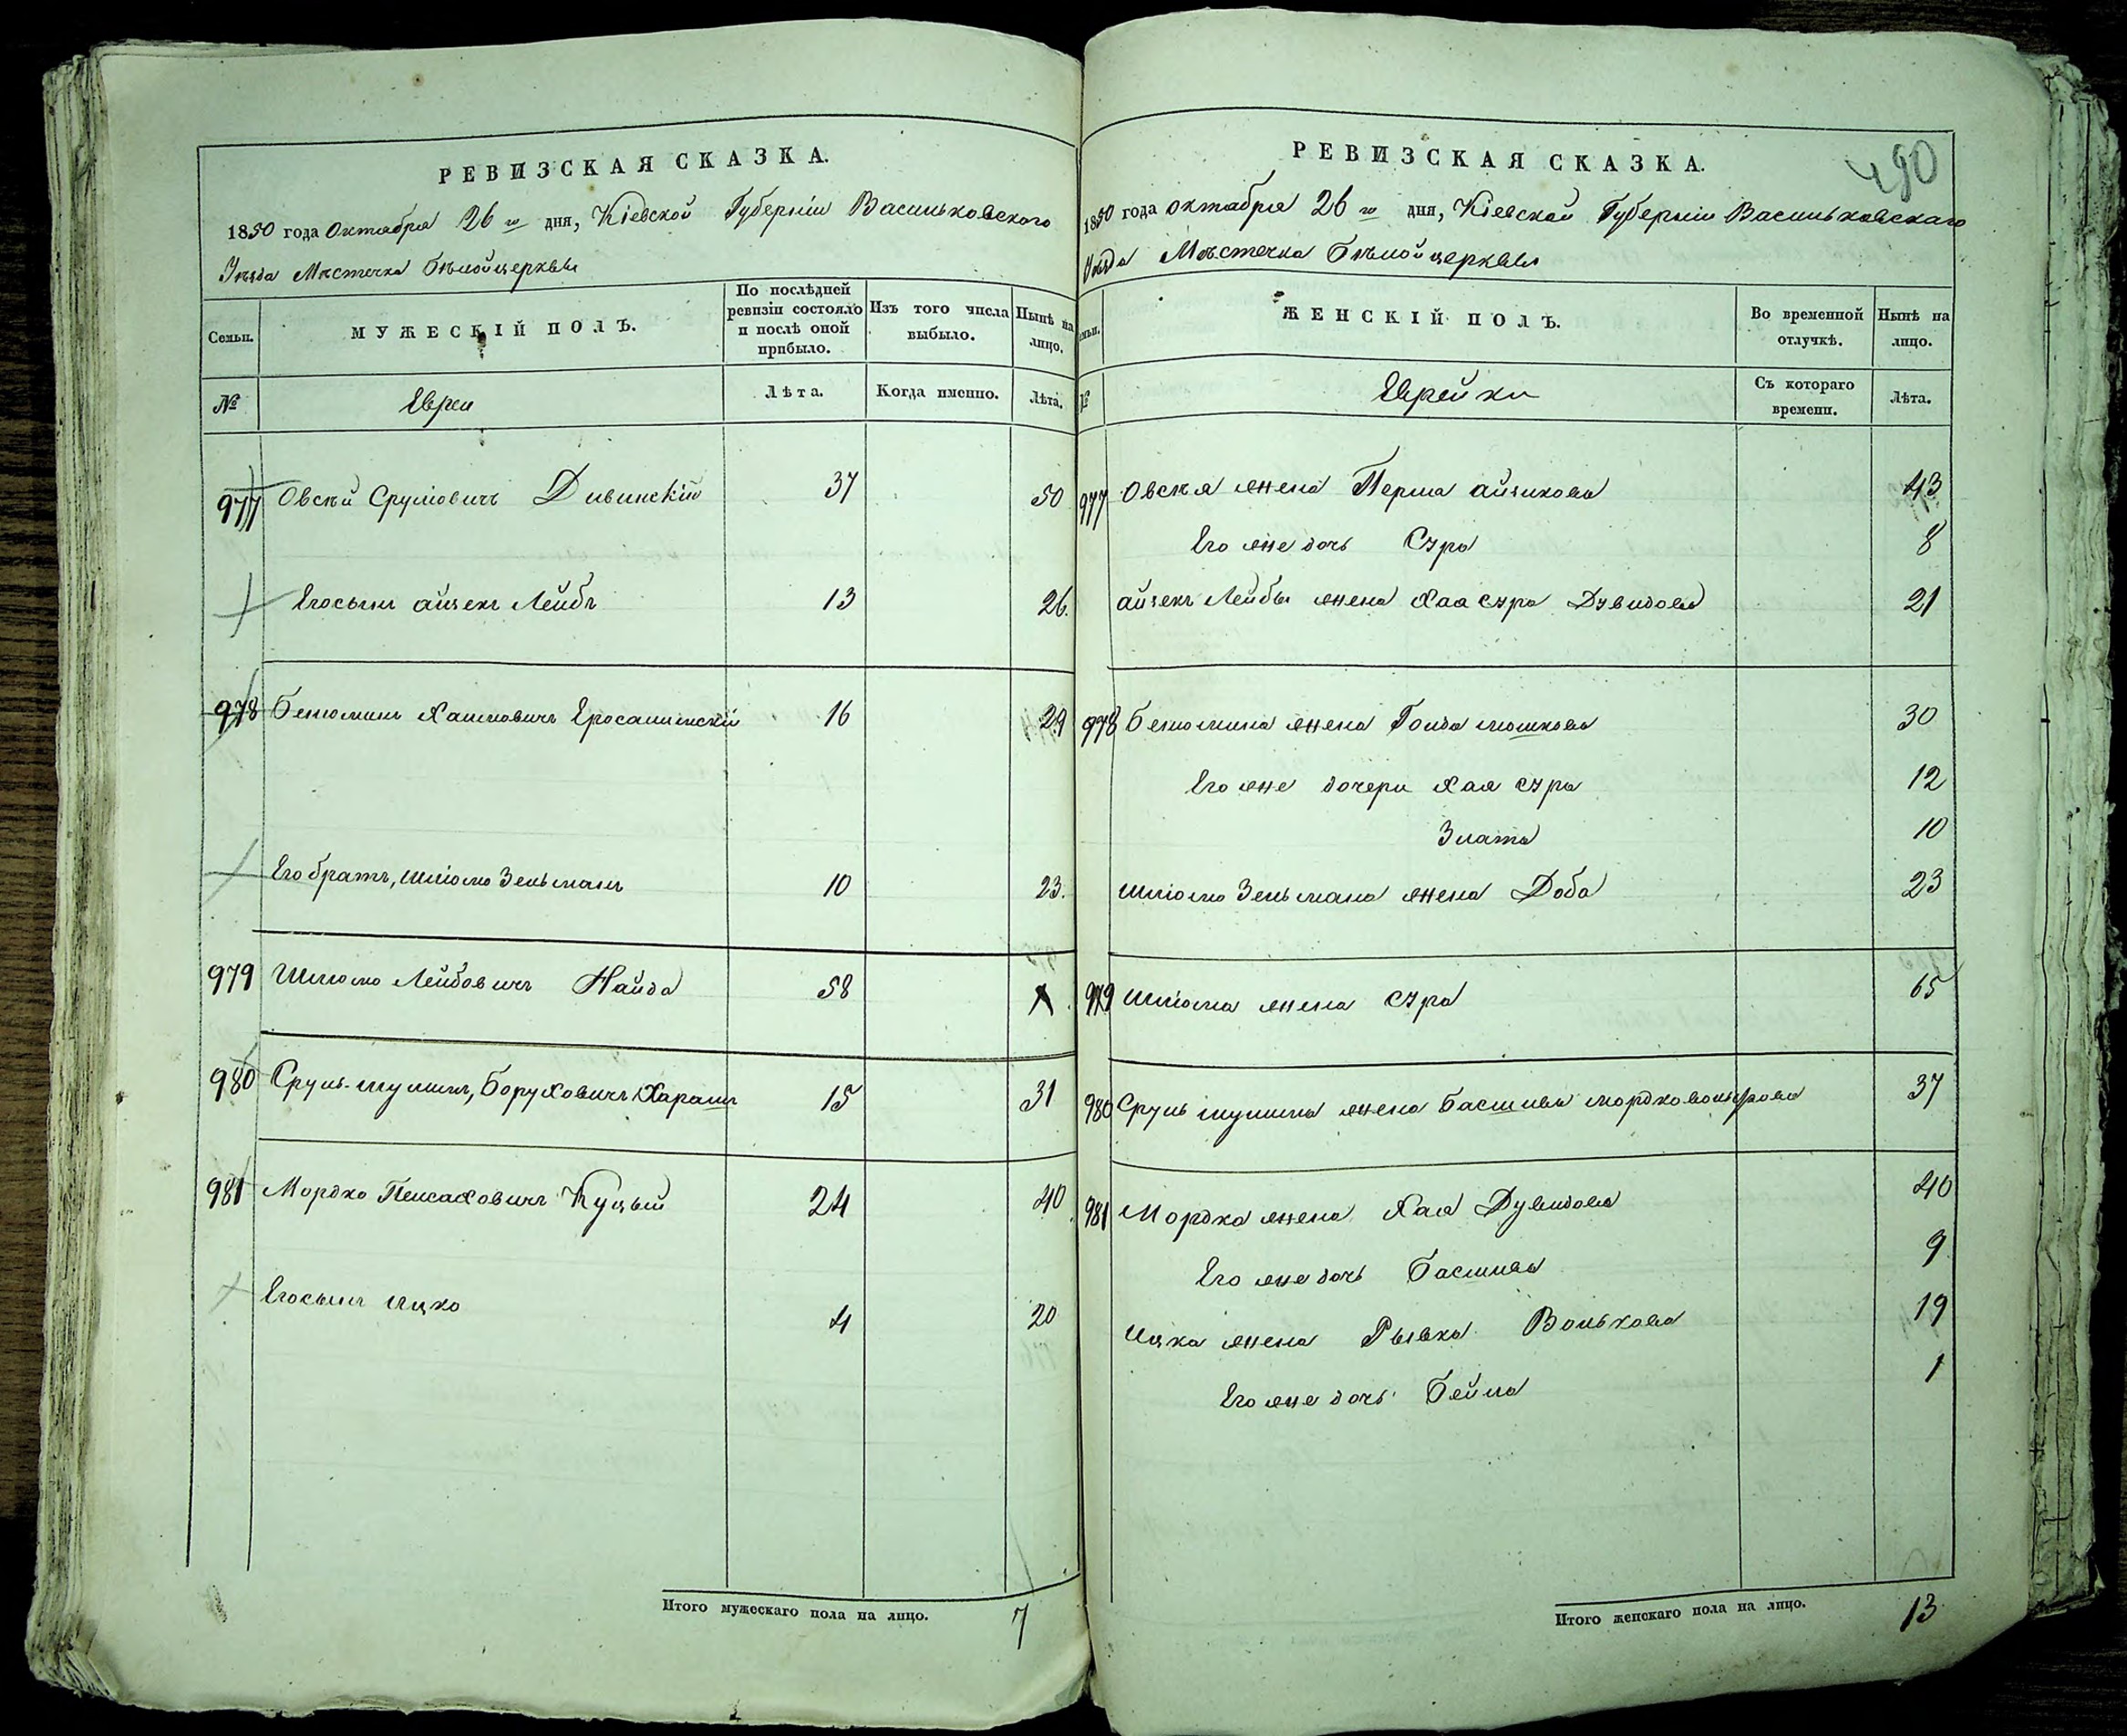 РЕВИЗСКАЯ СКАЗКА.
1850 года Октября 26 го дня, Кіевской Губерніи Васильковского
Уѣзда Мѣстечка Бѣлойцеркви
Семьи.
МУЖЕСКІЙ ПОЛЪ.
По послѣдней ревизіи состояло и послѣ оной прибыло.
Изъ того числа выбыло.
Нынѣ на лицо.
№
Евреи
Лѣта.
Когда именно.
Лѣта.
977 Овсѣй Срулiовичъ Дивинскій 37 50
Его сынъ айзекъ Лейбъ 13 26.
978 Бениоминъ Хаимовичъ Еросалимскій 16 29
Его братъ, Шліомо Зельманъ 10 23.
979 Шліомо Лейбовичъ Найда 58
980 Сруль-шулимъ, Боруховичъ Харашъ 15 31
981 Мордко Пейсаховичъ Куцый 24 40
Его сынъ Ицко 4 20
Итого мужескаго пола на лицо. 7
490
РЕВИЗСКАЯ СКАЗКА.
1850 года октября 26 го дня, Кіевской Губерніи Васильковскаго
Уѣзда Мѣстечка Бѣлойцеркви
Семьи.
ЖЕНСКІЙ ПОЛЪ.
Во временной отлучкѣ.
Нынѣ на лицо.
№
Еврейки
Съ котораго времени.
Лѣта.
977 Овсѣя жена Перла айзикова 43
Его же дочь Сура 8
айзекъ Лейбы жена Хая сура Дувидова 21
978 Бениомина жена Голда мошкова 30
Его же дочери Хая сура 12
Злата 10
Шліомо Зельмана жена Доба 23
979 Шліома жена Сура 65
980 Сруль шулима жена Басшива 37
981 Мордка жена Хая Дувидова 40
Его же дочь Басшива 9
Ицка жена Рывка Волькова 19
Его же дочь Бейла 1
Итого женскаго пола на лицо. 13